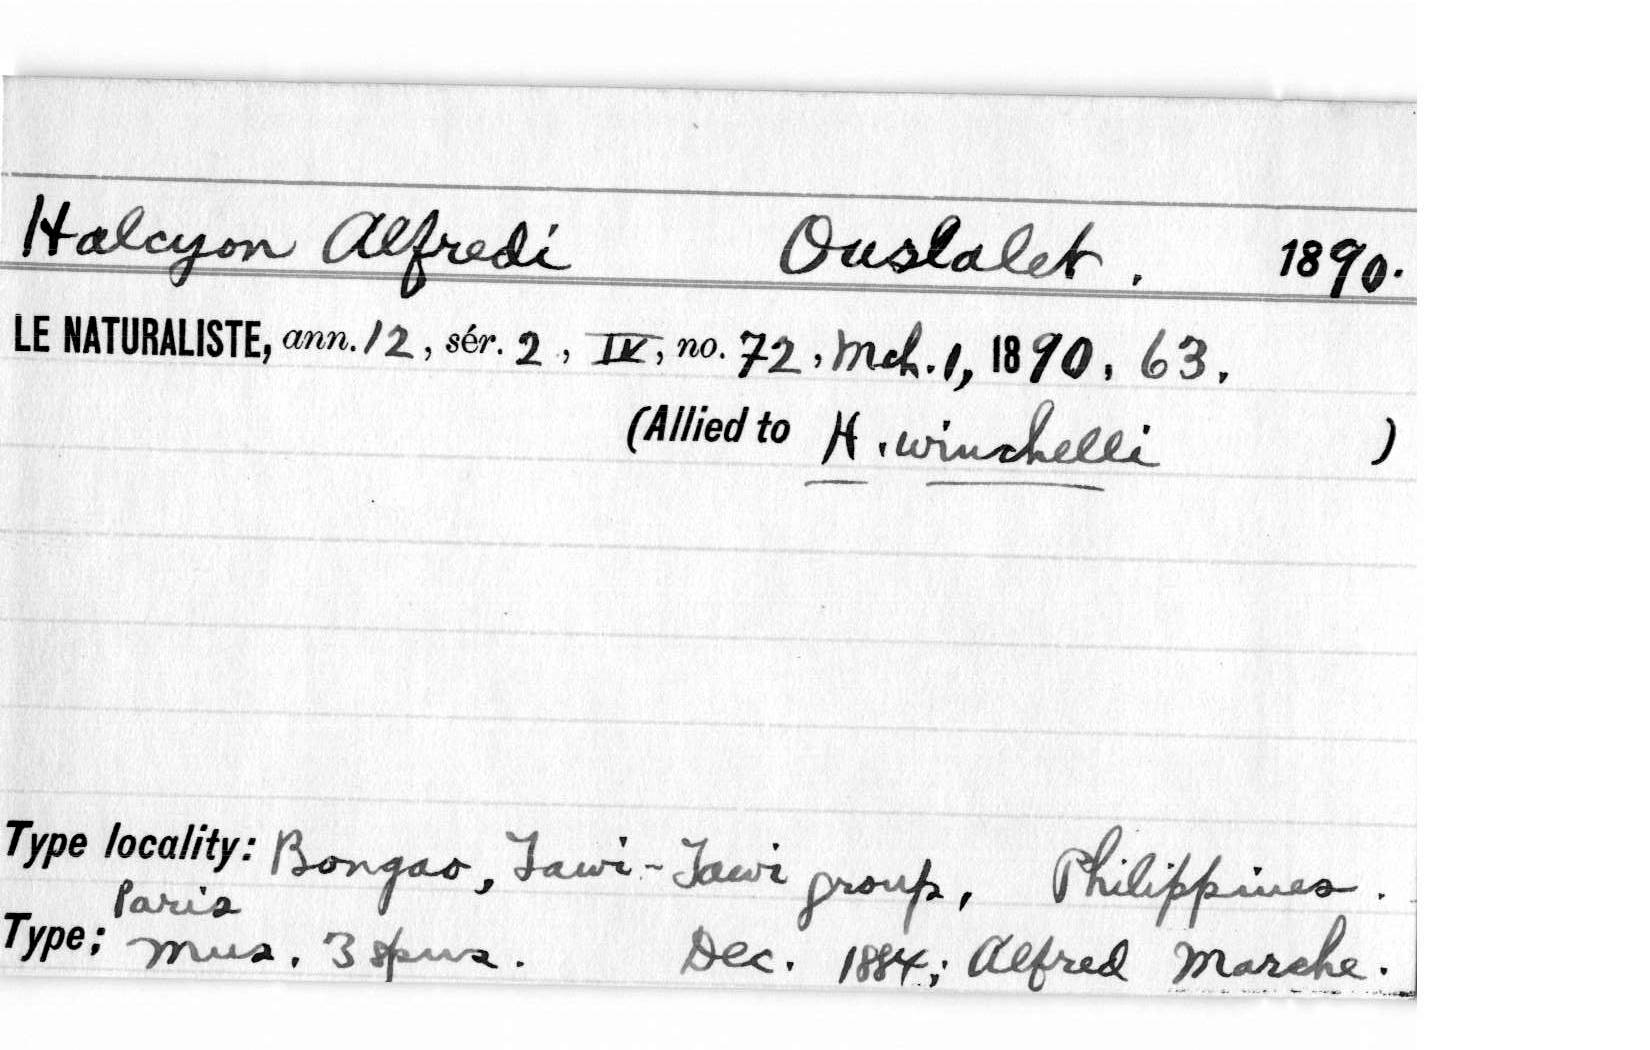 Halcyon Alfredi Oustalet. 1890.
LE NATURALISTE, ann. 12, sér. 2, IV, no. 72, Mch. 1, 1890, 63.
(Allied to H. winchelli )
Type locality: Bongao, Tawi-Tawi group, Philippines.
Paris
Type: Mus. 3 spns. Dec. 1884; Alfred Marche.